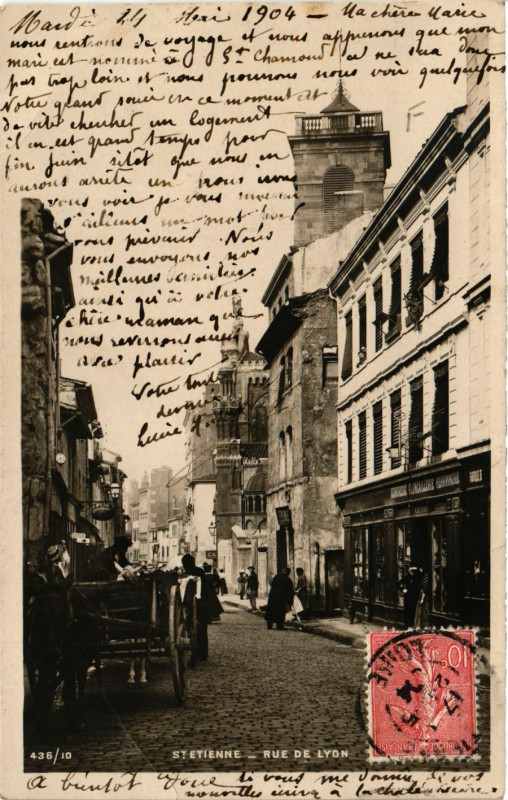 Mardi 24 Mai 1904 – Ma chère Marie
nous rentrons de voyage et nous apprenons que mon
mari est nommé à St Chamond ce ne sera donc
pas trop loin et nous pourrons nous voir quelquefois
Notre grand souci en ce moment est
de vite chercher un logement
il en est grand temps pour
fin Juin sitôt que nous en
aurons arrêté un nous irons
vous voir je vous
d'ailleurs un mot pour
vous prévenir. Nous
vous envoyons nos
meilleures amitiés
ainsi qu'à votre
chère maman que
nous reverrons avec
plaisir
Votre toute
dévouée
Lucie
436/10
ST ETIENNE _ RUE DE LYON
10
LOIRE
A bientôt donc si vous me donnez de vos
nouvelles